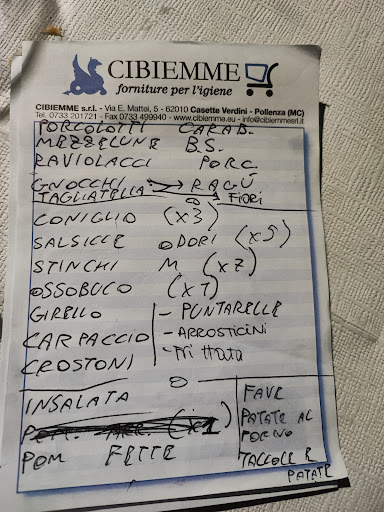 CIBIEMME
forniture per l'igiene
CIBIEMME s.r.l. - Via E. Mattei, 5 - 62010 Casette Verdini - Pollenza (MC)
Tel. 0733 201721 - Fax 0733 499940 - www.cibiemme.eu - info@cibiemmesrl.it
PORCOLOTTI CARAB.
MEZZELUNE B.S.
RAVIOLACCI PORC.
GNOCCHI RAGÙ
TAGLIATELLA FIORI
CONIGLIO (x3)
SALSICCE ODORI (x5)
STINCHI M (x7)
OSSOBUCO (x1)
GIRELLO - PUNTARELLE
CARPACCIO - ARROSTICINI
CROSTONI - Frittata
INSALATA
POM FETTE
FAVE
PATATE AL
FORNO
TACCOLE E
PATATE